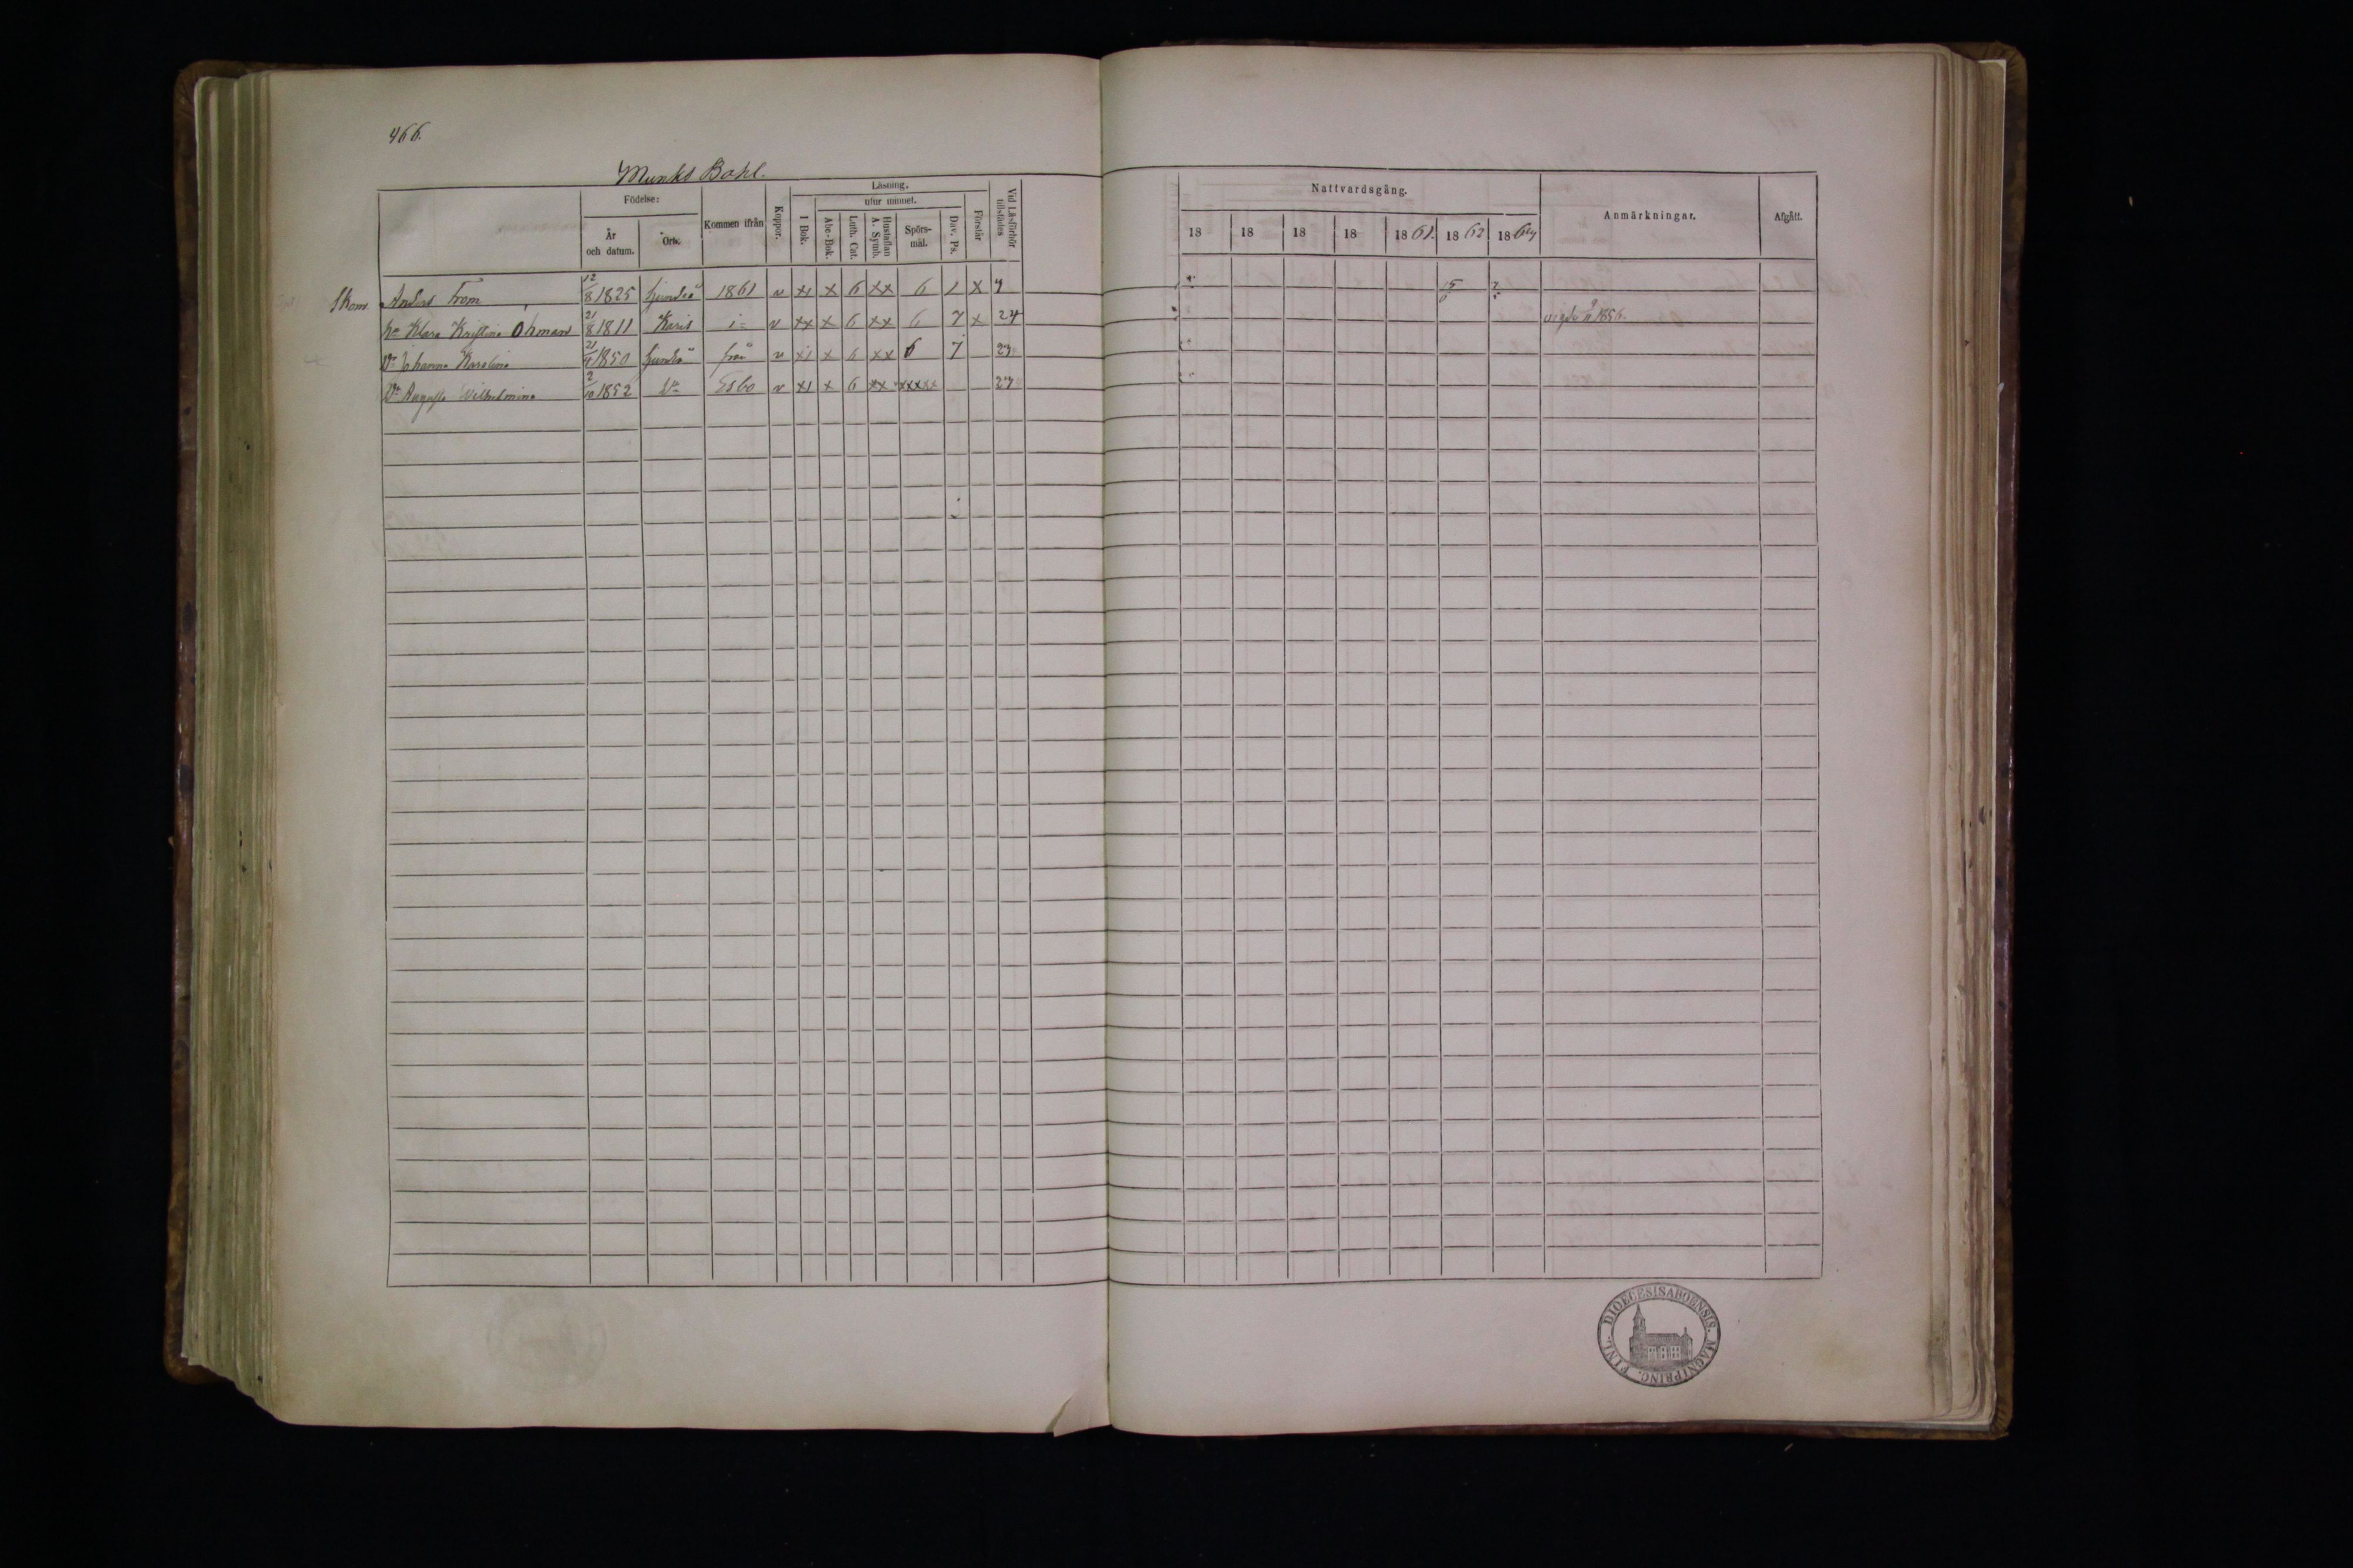 466.
Munks Bohl.
Födelse: Läsning.
utur minnet.
År och datum. Ort. Kommen ifrån Koppor. I Bok. Abc-Bok. Luth. Cat. Hustaflan A. Symb. Spörsmål. Dav. Ps. Förstår Vid Läsförhör tillstädes
Nattvardsgång. Anmärkningar. Afgått.
18 18 18 18 1861. 1862 1864
Skom. Anders From 12/8 1825 Sjundeå 1861 v x1 x 6 xx 6 1 x 4 15
hu Klara Kristina Öhman 21/8 1811 Karis i v xx x 6 xx 6 7 x 24 vigde 1856.
Dr Johanna Karolina 1850 Sjundeå från v x1 x 6 xx 6 7 23
Dr Augusta Wilhelmina 2/10 1852 Dº Esbo v x1 x 6 xx xxxxx 23
DIOECESIS ABOENSIS. MAGNI PRINC. FINL.